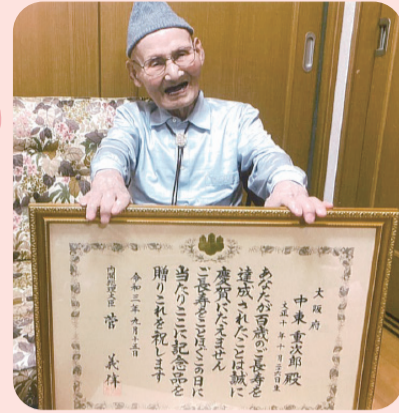 大阪府
中東重次郎殿
大正十年十月二六日生
あなたが百歳のご長寿を
達成されたことは誠に
慶賀にたえません
ご長寿をことほぐこの日に
当たりここに記念品を
贈りこれを祝します
令和三年九月十五日
内閣総理大臣 菅 義偉